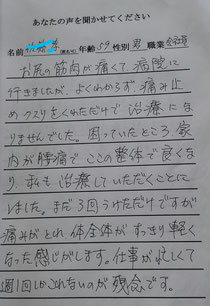 あなたの声を聞かせてください
名前 (匿名可) 年齢59 性別 男 職業 会社員
お尻の筋肉が痛くて、病院に
行きましたが、よくわからず、痛み止
めクスリをくれただけで治療にな
りませんでした。困っていたところ家
内が腰痛でここの整体で良くな
り、私も治療していただくことに
しました。まだ3回うけただけですが
痛みがとれ体全体がすっきり軽く
なった感じがします。仕事が忙しくて
週1回しかこれないのが残念です。